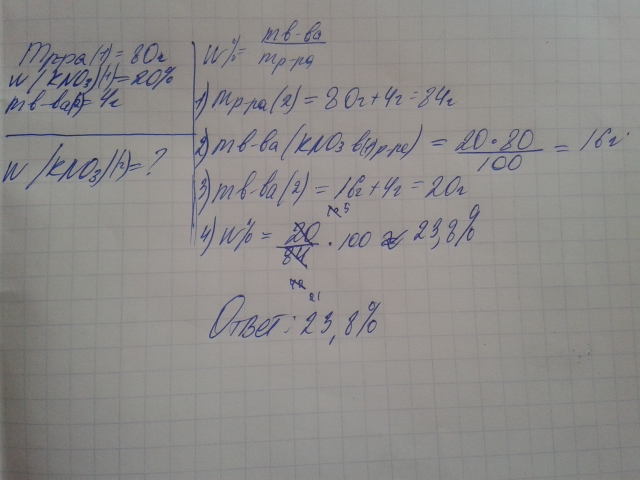 mр-ра(1) = 80г
w(KNO3)(1) = 20%
mв-ва(2) = 4г
w(KNO3)(2) = ?
w% = mв-ва / mр-ра
1) mр-ра(2) = 80г + 4г = 84г
2) mв-ва(KNO3 в(1)р-ре) = 20 · 80 / 100 = 16г
3) mв-ва(2) = 16г + 4г = 20г
4) w% = 20 / 84 · 100 ≈ 23,8%
5
21
Ответ: 23,8%